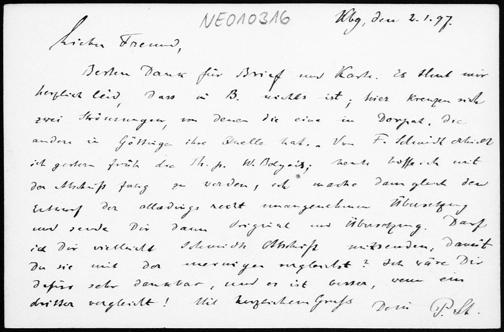 NEO10316
Kbg, den 2.1.97.
Lieber Freund,
Besten Dank für Brief und Karte. Es thut mir
herzlich leid, dass in B. nichts ist; hier kreuzen sich
zwei Strömungen, von denen die eine in Dorpat, die
andere in Göttingen ihre Quelle hat. Von F. Schmidt erhielt
ich gestern früh die W. Bolyais; heute hoffe ich mit
der Abschrift fertig zu werden, ich mache dann gleich den
Entwurf der allerdings recht unangenehmen Übersetzung
und sende Dir dann Original und Übersetzung. Darf
ich Dir vielleicht Schmidts Abschrift mitsenden, damit
Du sie mit der meinigen vergleichst? Ich wäre Dir
dafür sehr dankbar, und es ist besser, wenn ein
dritter vergleicht! Mit herzlichem Gruss
Dein P. St.